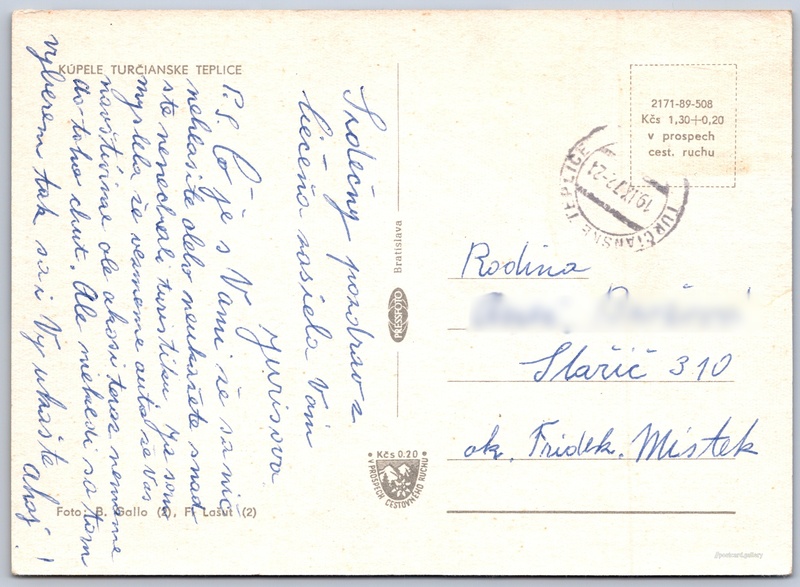 KÚPELE TURČIANSKE TEPLICE
Srdečný pozdrav z
liečenia zasiela Vám
Jurisova
P.S. Čo je s Vami že sa nič
nehlásite alebo neukážete snad
ste nenechali turistiku. Ja som
myslela že vezmeme auto že Vás
navštívime ale akosi teraz nemáme
do toho chuť. Ale niekedy sa tam
vyberem tak sa i Vy ukážte ahoj!
Foto: B. Gallo (2), F. Lašut (2)
PRESSFOTO Bratislava
Kčs 0.20
V PROSPECH CESTOVNÉHO RUCHU
2171-89-508
Kčs 1,30+0,20
v prospech
cest. ruchu
TURČIANSKE TEPLICE
19.IX.72-24
Rodina
Staříč 310
ok. Frídek. Místek
@postcard.gallery